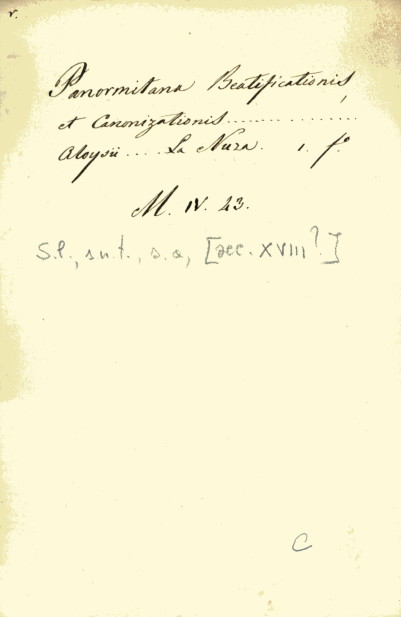 r.
Panormitana Beatificationis,
et Canonizationis..............
Aloysii .... La Nura. 1. fº
M. IV. 43.
S.l., s.n.t., s.a, [sec. XVIII?]
C